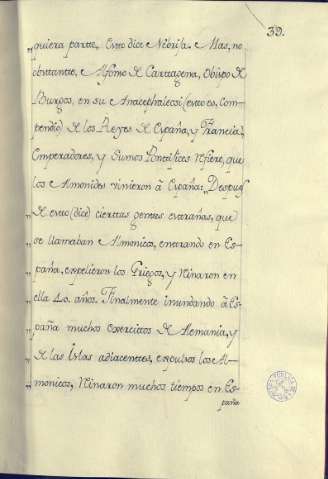 39.
„quiera parte, Esto dice Nebrija. Mas, no
„obstante, Alfonso de Cartagena, Obispo de
„Burgos, en su Anacephaleosi (esto es, Com-
„pendio) de los Reyes de España, y Francia,
„Emperadores, y Sumos Pontifices refiere, que
„los Almonides vinieron à España: „Despues
„de esto (dice) ciertas gentes estrañas, que
„se llamaban Almonicos, entrando en Es-
„paña, expelieron los Griegos, y reinaron en
„ella 40. años. Finalmente inundando à Es-
„paña muchos exercitos de Alemania, y
„de las Islas adiacentes, expulsos los Al-
„monicos, reinaron muchos tiempos en Es-
paña